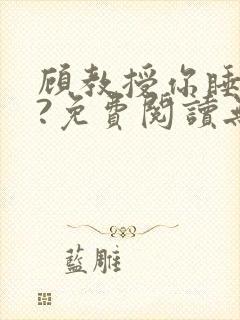 顾教授你睡
?免費閱讀無
藍雕